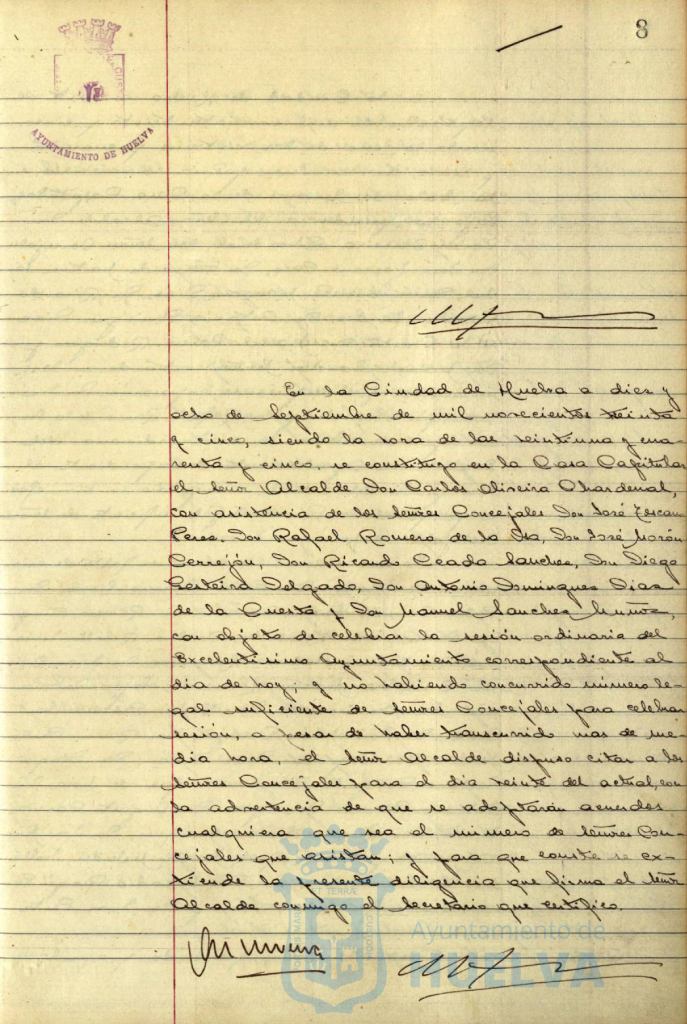 8
AYUNTAMIENTO DE HUELVA
En la Ciudad de Huelva a diez y
ocho de Septiembre de mil novecientos treinta
y cinco, siendo la hora de las veintiuna y cua-
renta y cinco, se constituyó en la Casa Capitular
el Señor Alcalde Don Carlos Oliveira Chardenal,
con asistencia de los Señores Concejales Don José Toscano
Perez, Don Rafael Romero de la Osa, Don José Morón
Cerrejón, Don Ricardo Ceada Sanchez, Don Diego
Delgado, Don Antonio Dominguez Diaz
de la Cuesta y Don Manuel Sanchez Muñoz,
con objeto de celebrar la sesión ordinaria del
Excelentísimo Ayuntamiento correspondiente al
dia de hoy; y no habiendo concurrido número le-
gal suficiente de Señores Concejales para celebrar
sesión, a pesar de haber transcurrido mas de me-
dia hora, el Señor Alcalde dispuso citar a los
Señores Concejales para el dia veinte del actual, con
la advertencia de que se adoptarán acuerdos
cualquiera que sea el número de Señores Con-
cejales que asistan; y para que conste se ex-
tiende la presente diligencia que firma el Señor
Alcalde conmigo el Secretario que certifico.
Ayuntamiento de
HUELVA